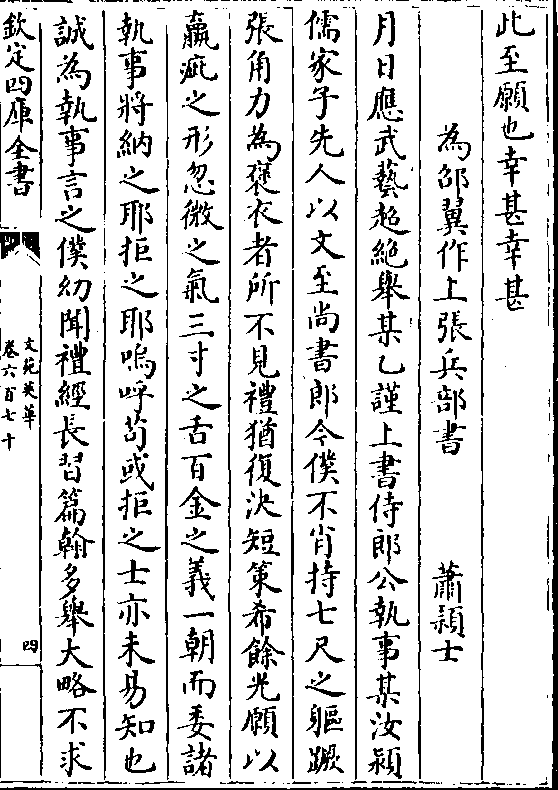 此至願也幸甚幸甚
為邵翼作上張兵部書 蕭穎士
月日應武藝超絶舉某乙謹上書侍郎公執事某汝潁
儒家子先人以文至尚書郎今僕不肖持七尺之軀蹶
張角力為褒衣者所不見禮猶復決短策希餘光願以
羸疵之形忽微之氣三寸之舌百金之義一朝而委諸
執事將納之耶拒之耶嗚呼苟或拒之士亦未易知也
誠為執事言之僕幼聞禮經長習篇翰多舉大略不求
欽定四庫全書
文苑英華
卷六百七十
四